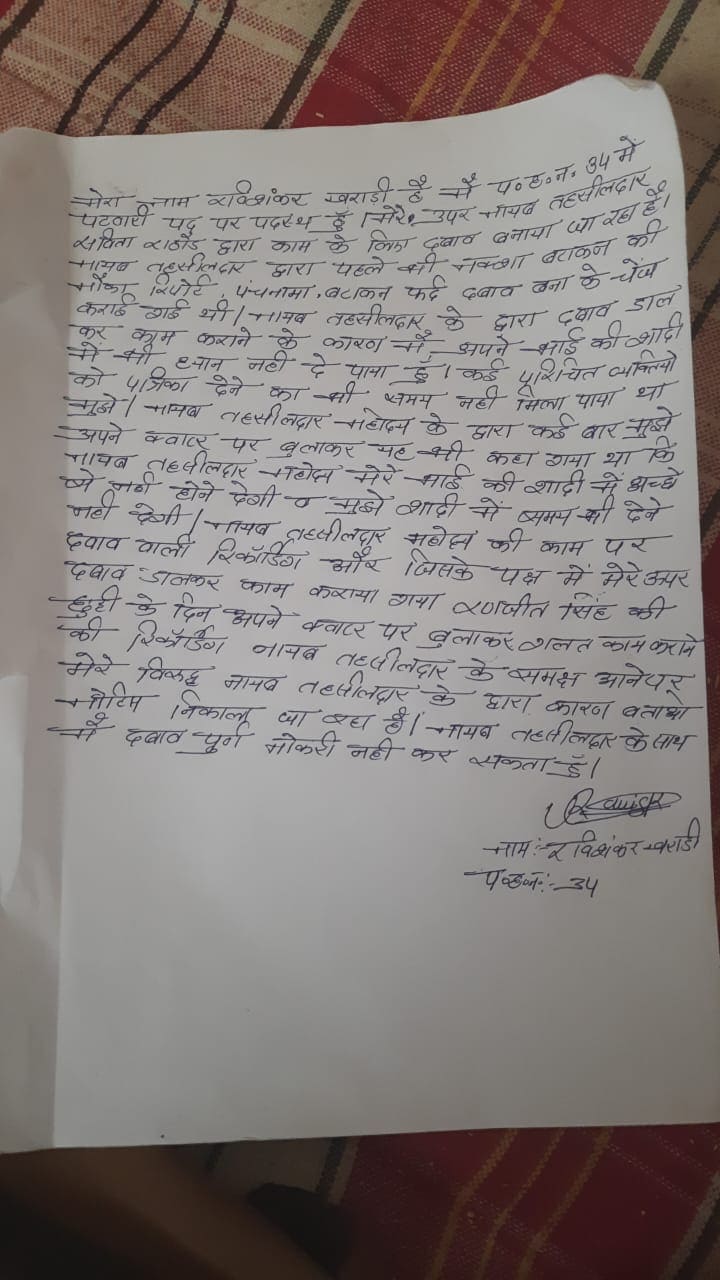 मेरा नाम रविशंकर खराड़ी है मैं प.ह.न. 34 में
पटवारी पद पर पदस्थ हूँ। मेरे उपर नायब तहसीलदार
सविता राठौड द्वारा काम के लिए दबाव बनाया जा रहा है।
नायब तहसीलदार द्वारा पहले भी नक्शा बटाकन की
मौका रिपोर्ट, पंचनामा, बटाकन फर्द दबाव बना के चेंज
कराई गई थी। नायब तहसीलदार के द्वारा दबाव डाल
कर काम कराने के कारण मैं अपने भाई की शादी
में भी ध्यान नही दे पाया हूँ। कई परिचित व्यक्तियो
को पत्रिका देने का भी समय नही मिला पाया था
मुझे। नायब तहसीलदार महोदय के द्वारा कई बार मुझे
अपने क्वाटर पर बुलाकर यह भी कहा गया था कि
नायब तहसीलदार महोदय मेरे भाई की शादी में अच्छे
से नही होने देगी व मुझे शादी में समय भी देने
नही देगी। नायब तहसीलदार महोदय की काम पर
दबाव वाली रिकॉर्डिंग और जिसके पक्ष में मेरे उपर
दबाव डालकर काम कराया गया रणजीत सिंह की
छुट्टी के दिन अपने क्वाटर पर बुलाकर गलत काम कराने
की रिकॉर्डिंग नायब तहसीलदार के समक्ष आने पर
मेरे विरुद्ध नायब तहसीलदार के द्वारा कारण बताओ
नोटिस निकाला जा रहा है। नायब तहसीलदार के साथ
मैं दबाव पुर्ण नोकरी नही कर सकता हूँ।
नाम:- रविशंकर खराडी
प.ह.न.:- 34